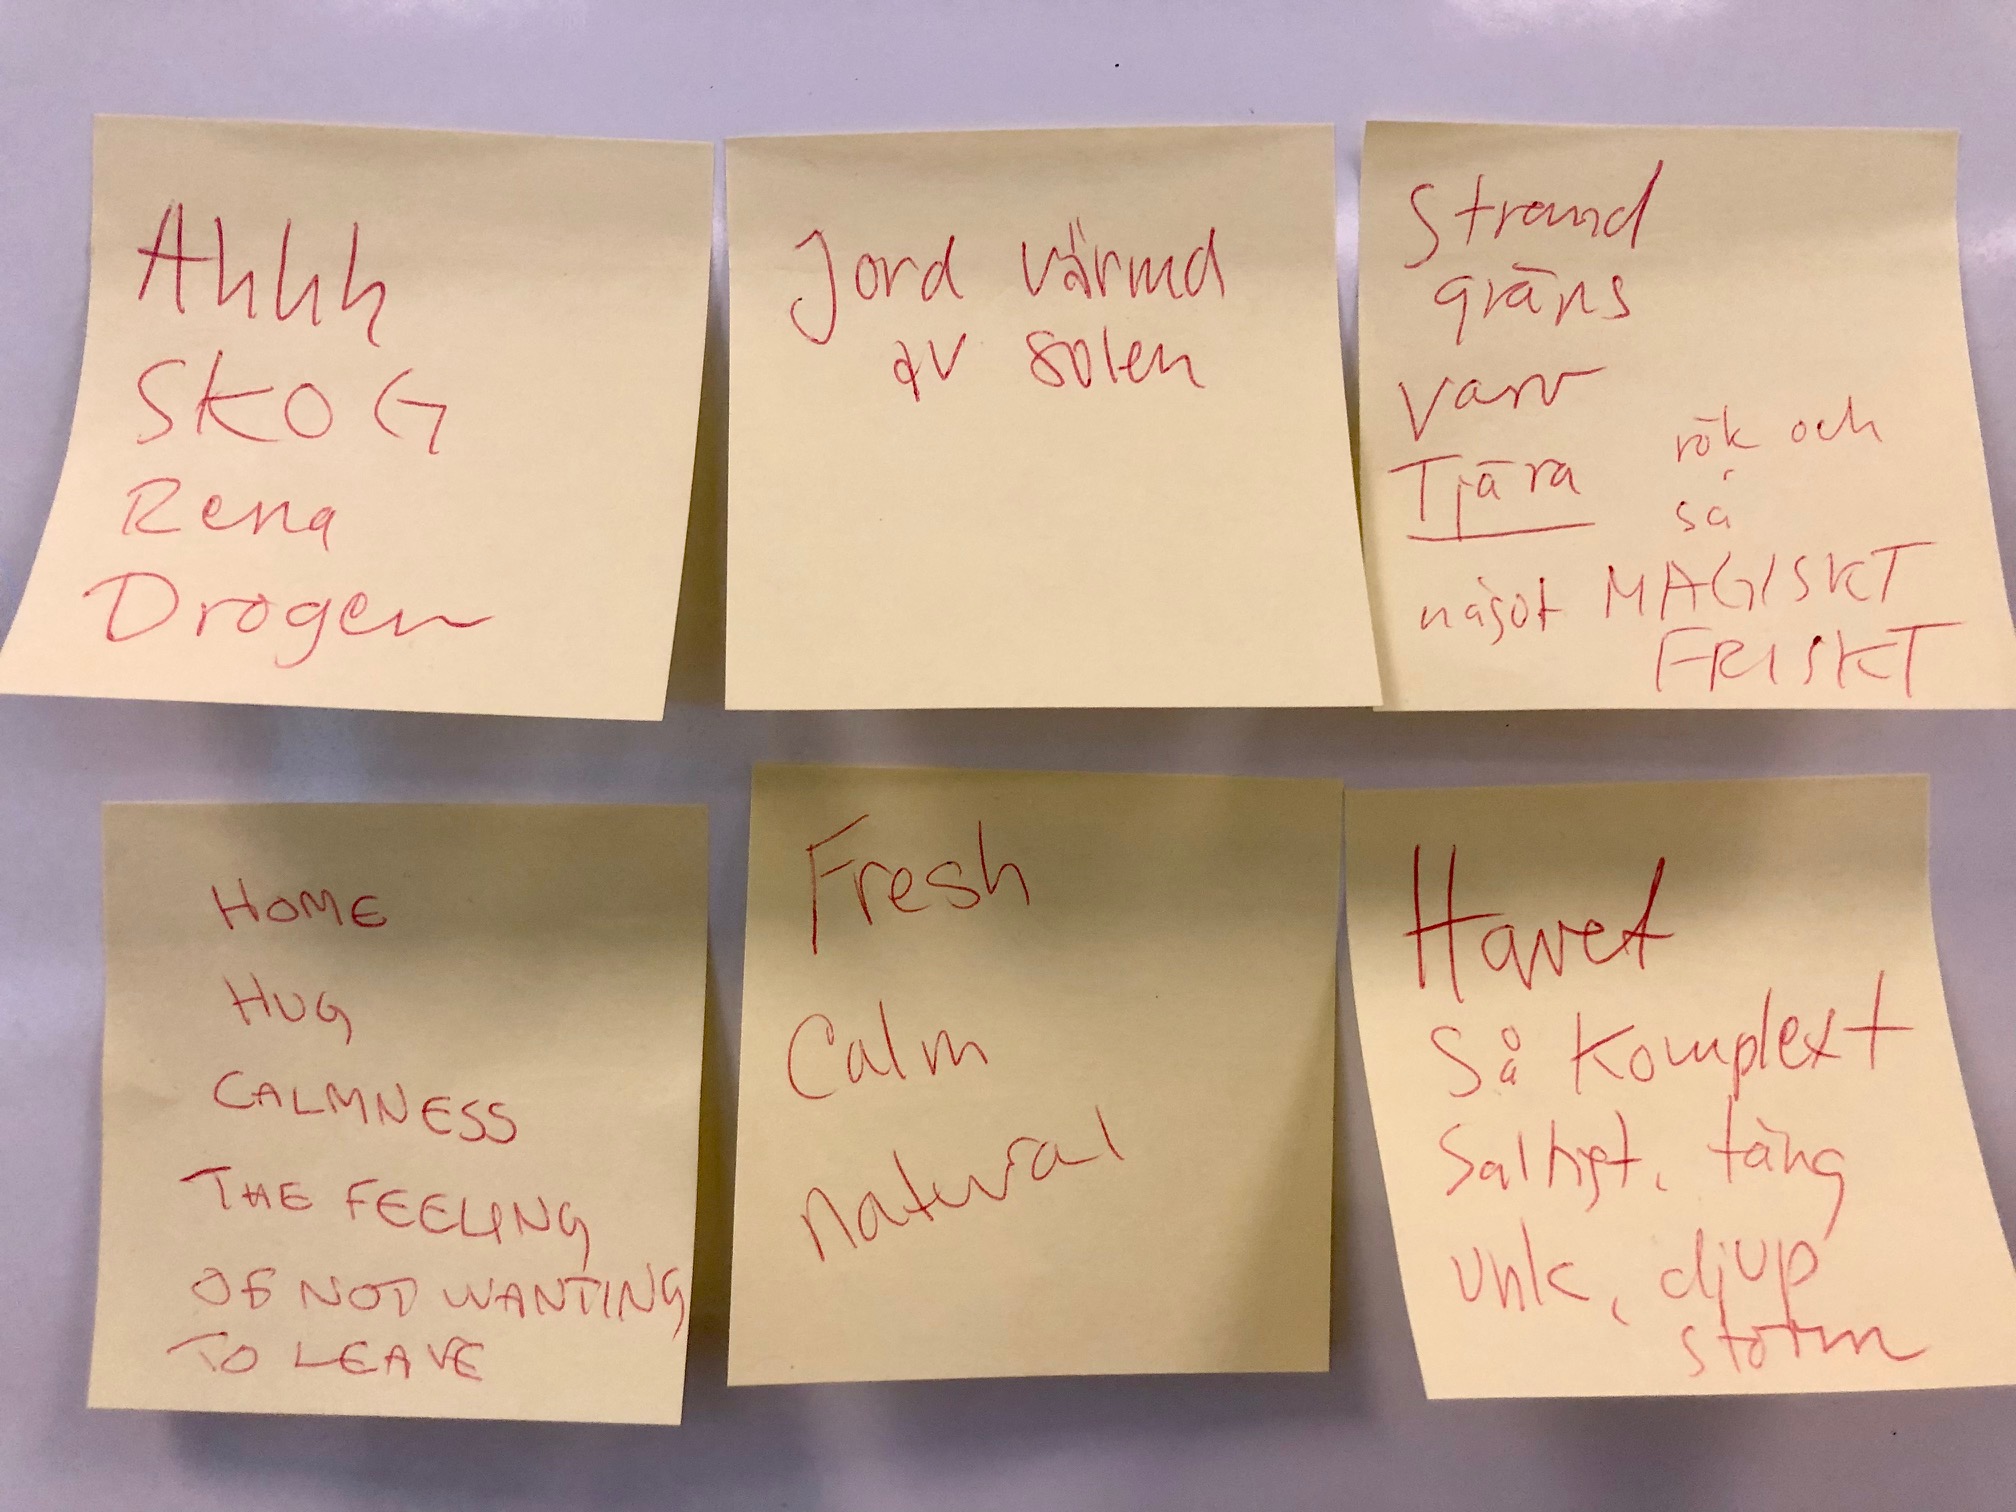 Ahhh
SKOG
Rena
Drogen
Jord värmd
av solen
Strand
gräns
Varv
Tjära
rök och
så
något MAGISKT
FRISKT
HOME
HUG
CALMNESS
THE FEELING
OF NOT WANTING
TO LEAVE
Fresh
Calm
Natural
Havet
Så Komplext
Saltigt, tång
unk, djup
storm